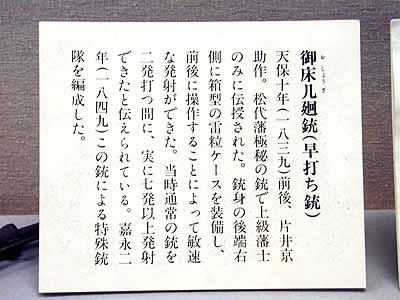 御床几廻銃(早打ち銃)
おしょうぎ
天保十年(一八三九)前後、片井京
助作。松代藩極秘の銃で上級藩士
のみに伝授された。銃身の後端右
側に箱型の雷粒ケースを装備し、
前後に操作することによって敏速
な発射ができた。当時通常の銃を
二発打つ間に、実に七発以上発射
できたと伝えられている。嘉永二
年(一八四九)この銃による特殊銃
隊を編成した。